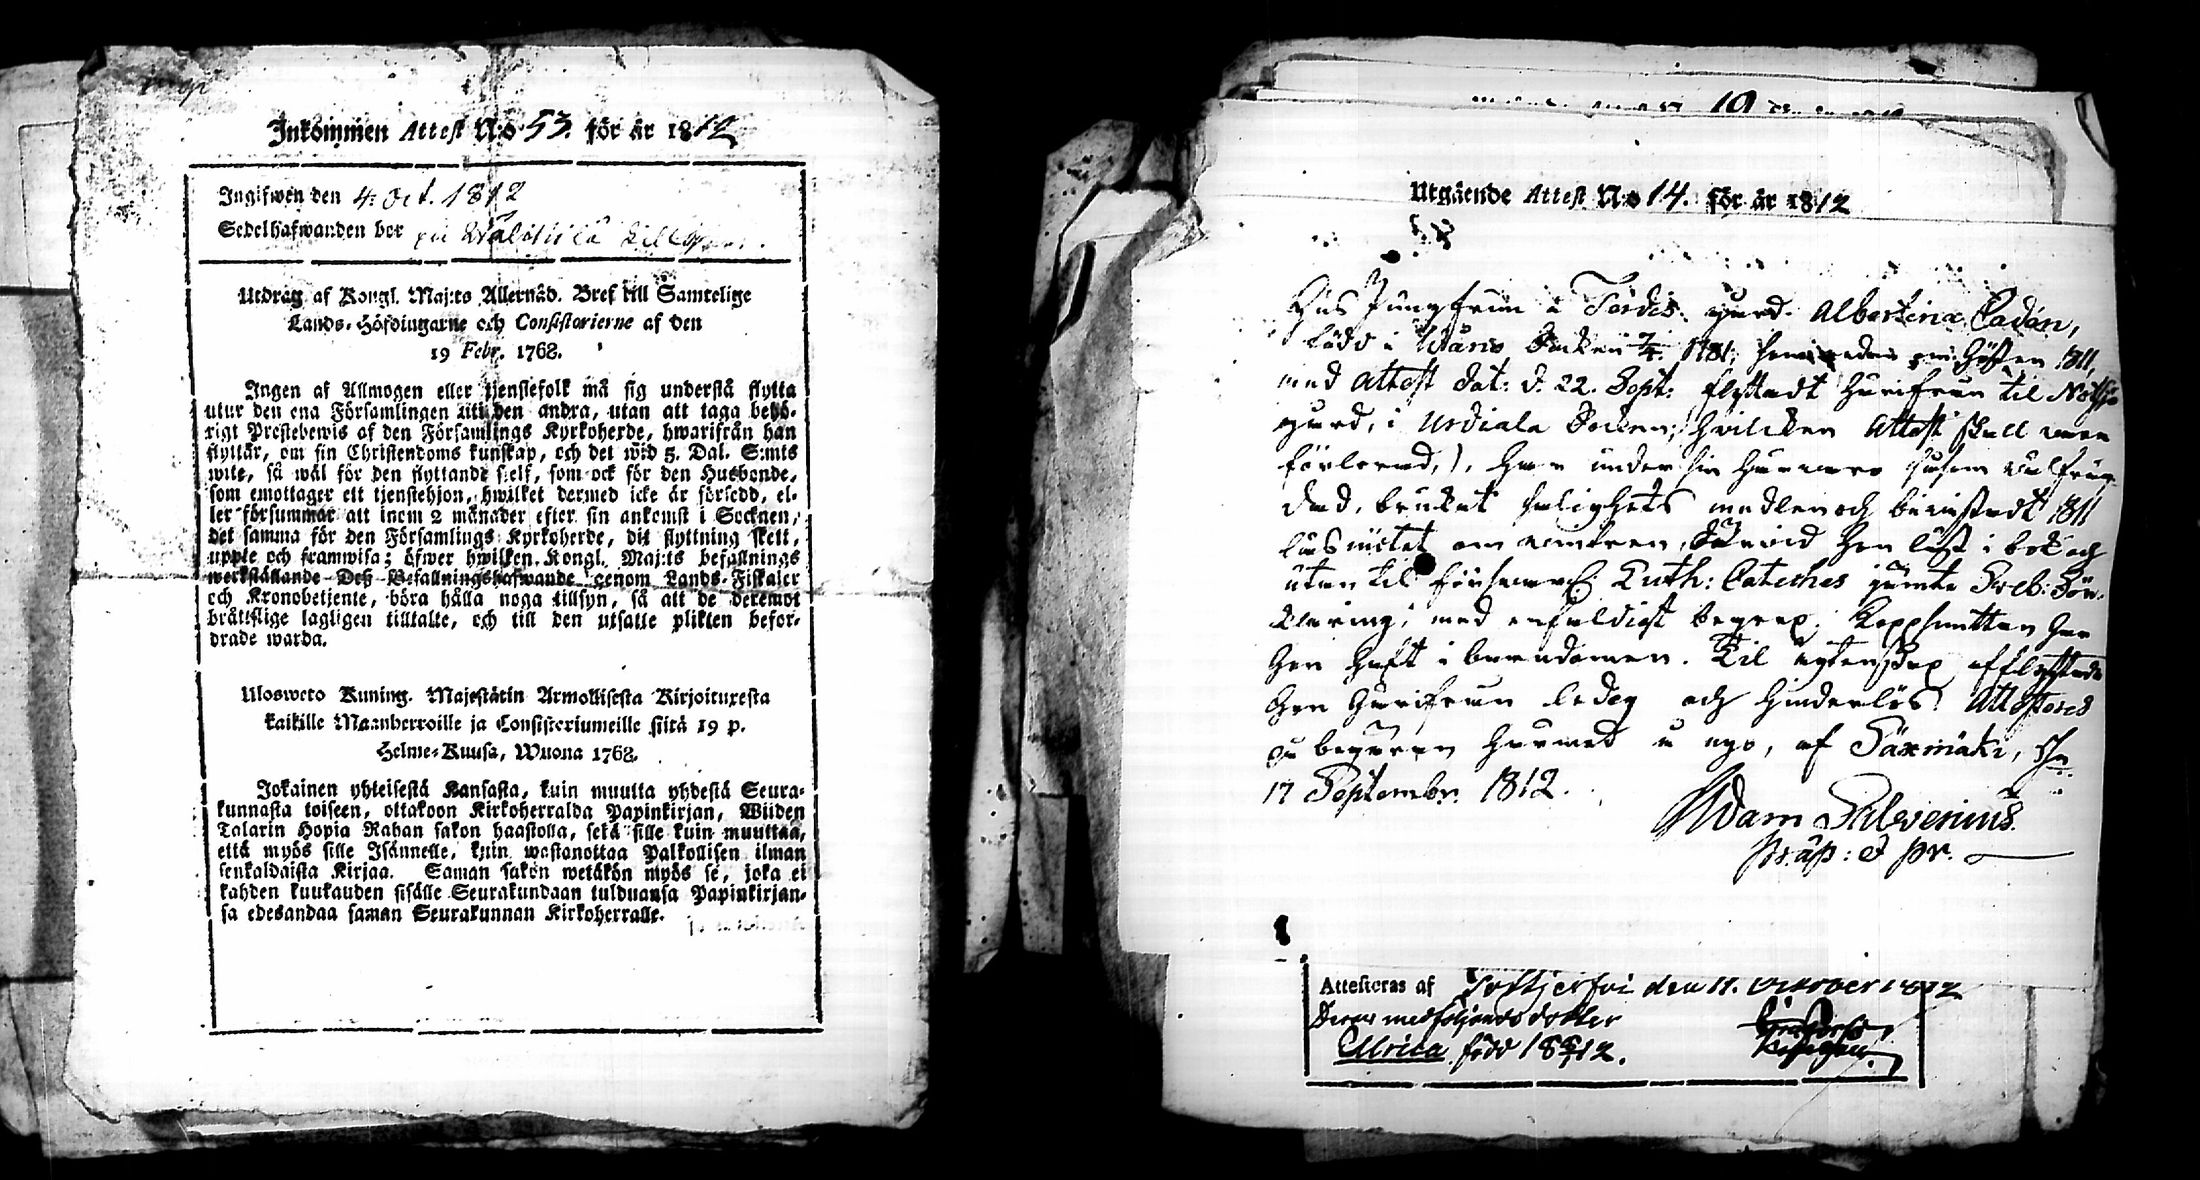 Inkommen Attest N:o 53. för år 1812
Ingifwen den 4. Oct. 1812
Sedelhafwanden bor på
Utdrag af Kongl. Maj:ts Allernåd. Bref till Samtelige
Lands-Höfdingarne och Consistorierne af den
19 Febr. 1768.
Ingen af Allmogen eller tjenstefolk må sig understå flytta
utur den ena Församlingen uti den andra, utan att taga behö-
rigt Prestebewis af den Församlings Kyrkoherde, hwarifrån han
flyttar, om sin Christendoms kunskap, och det wid 5. Dal. S:mts
wite, så wäl för den flyttande sjelf, som ock för den Husbonde,
som emottager ett tjenstehjon, hwilket dermed icke är försedd, el-
ler försummar att inom 2 månader efter sin ankomst i Socknen,
det samma för den Församlings Kyrkoherde, dit flyttning skett,
uppte och framwisa; öfwer hwilken Kongl. Maj:ts befallnings
werkställande Deß Befallningshafwande genom Lands-Fiskaler
och Kronobetjente, böra hålla noga tillsyn, så att de deremot
bråttslige lagligen tilltalte, och till den utsatte plikten befor-
drade warda.
Ulosweto Kuning. Majestätin Armollisesta Kirjoituxesta
kaikille Maanherroille ja Consistoriumeille siitä 19 p.
Helme-Kuusa, Wuona 1768.
Jokainen yhteisestä Kansasta, kuin muutta yhdestä Seura-
kunnasta toiseen, ottakoon Kirkoherralda Papinkirjan, Wiiden
Talarin Hopia Rahan sakon haastolla, sekä sille kuin muuttaa,
että myös sille Isännelle, kuin wastanottaa Palkollisen ilman
senkaldaista Kirjaa. Saman sakon wetäkön myös se, joka ei
kahden kuukauden sisälle Seurakundaan tulduansa Papinkirjan-
sa edesandaa saman Seurakunnan Kirkoherralle.
Utgående Attest N:o 14. för år 1812
Hus Jungfrun å gård. Albertina Cadén,
född i Wånå Socken 7/4 1781, om hösten 1811,
med Attest dat: d. 22. Sept: flyttadt härifrån til
gård, i Urdiala Socken, hvilcken Attest skall vara
förlorad,), har under sin
dad, brukat salighets medlen och bevistadt 1811
läsmötet om Hon läst i bok och
utan til Luth: Catechis jämte Sveb: För-
klaring, med enfaldigt begrep. Koppsmittan har
Hon haft i barndomen. Til ägtenskap afflyttade
Hon härifrån ledig och hinderlös Attesteras
på begäran af Säxmäki,
17 September 1812.
Adam
præp: & pr.
Attesteras af den 11. October 1812
Deras medföljande dotter
Ulrica född